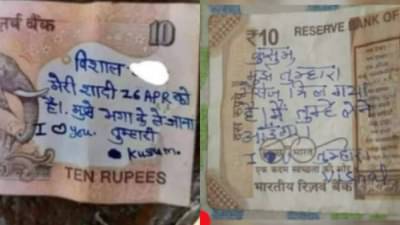 रतीय रिज़र्व बैंक
10
विशाल
मेरी शादी 26 APR को
है। मुझे भगा के ले जाना
I you तुम्हारी
Kusum.
TEN RUPEES
₹10 RESERVE BANK OF
कुसुम,
मुझे तुम्हारा
मिल गया
मैं तुम्हें लेने
आऊंगा।
I you तुम्हारा
Vishal
एक कदम स्वच्छता की ओर
भारतीय रिज़र्व बैंक